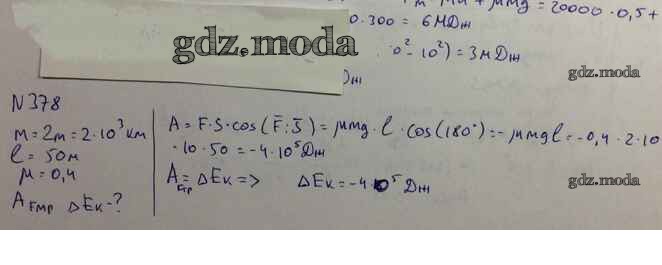 μmg = 20000·0,5+
0·300 = 6МДж
gdz.moda
0² - 10²) = 3мДж
Дж
gdz.moda
N378
m=2т=2·10³км
l = 50м
μ=0,4
Aтр ΔEк-?
A = F·S·cos(F̄;S̄) = μmg·l·cos(180°)=-μmgl=-0,4·2·10
·10·50=-4·10⁵Дж
Aтр = ΔEк => ΔEк=-4·10⁵ Дж
gdz.moda